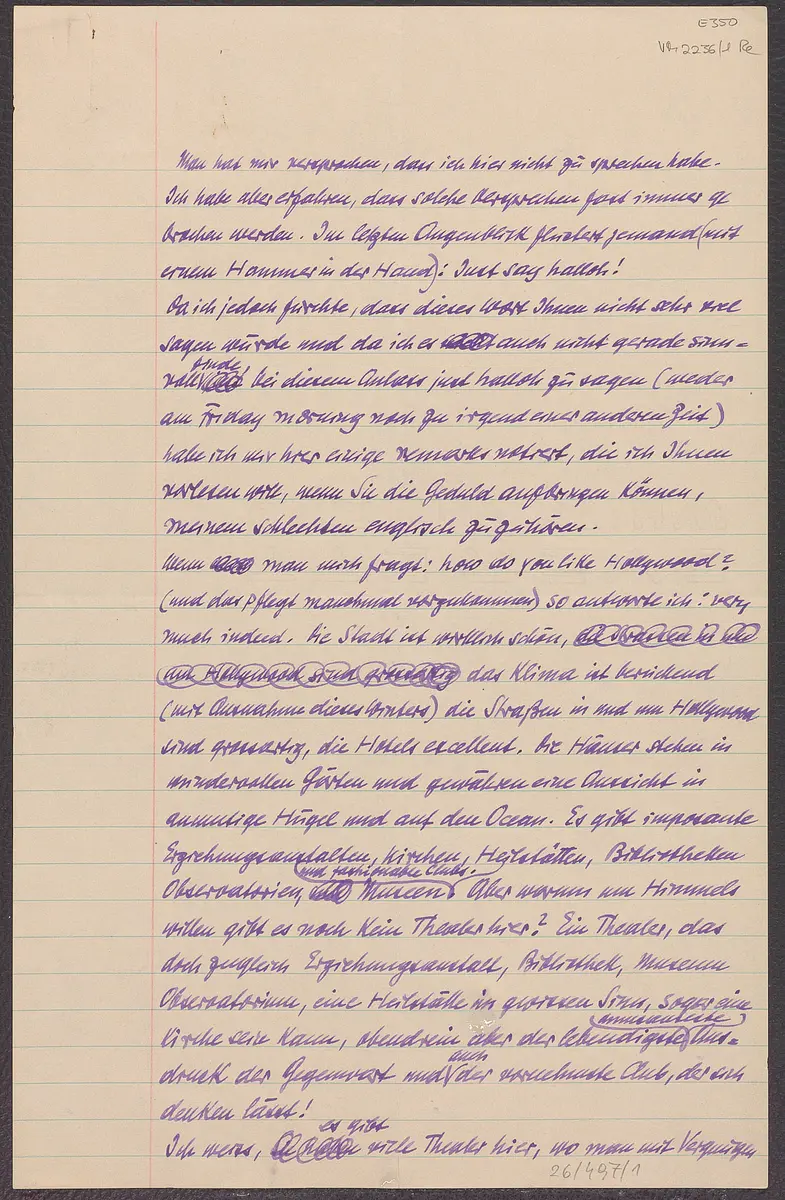 E350
VM 2236/1 Re
Man hat mir versprochen, dass ich hier nicht zu sprechen habe.
Ich habe aber erfahren, dass solche Versprechen fast immer ge
brochen werden. Im letzten Augenblick flüstert jemand (mit
einem Hammer in der Hand): Just say halloh!
Da ich jedoch fürchte, dass dieses Wort Ihnen nicht sehr viel
sagen würde und da ich es auch nicht gerade sinn=
finde,
voll bei diesem Anlass just halloh zu sagen (weder
am Friday morning noch zu irgend einer anderen Zeit)
habe ich mir hier einige remarks notiert, die ich Ihnen
vorlesen will, wenn Sie die Geduld aufbringen können,
meinem schlechten englisch zuzuhören.
Wenn man mich fragt: how do you like Hollywood?
(und das pflegt manchmal vorzukommen) so antworte ich: very
much indeed. Die Stadt ist wirklich schön, die Strassen in und
um Hollywood sind grossartig das Klima ist berückend
(mit Ausnahme dieses Winters) die Straßen in und um Hollywood
sind grossartig, die Hotels excellent. Die Häuser stehen in
wundervollen Gärten und gewähren eine Aussicht in
anmutige Hügel und auf den Ocean. Es gibt imposante
Erziehungsanstalten, Kirchen, Heilstätten, Bibliotheken
und fashionable Clubs.
Observatorien, Museen. Aber warum um Himmels
willen gibt es noch kein Theater hier? Ein Theater, das
doch zugleich Erziehungsanstalt, Bibliothek, Museum
Observatorium, eine Heilstätte im gewissen Sinn, sogar eine
amusanteste
Kirche sein kann, obendrein aber der lebendigste Aus=
auch
druck der Gegenwart und der vornehmste Club, der sich
denken lässt!
es gibt
Ich weiss, viele Theater hier, wo man mit Vergnügen
26/497/1